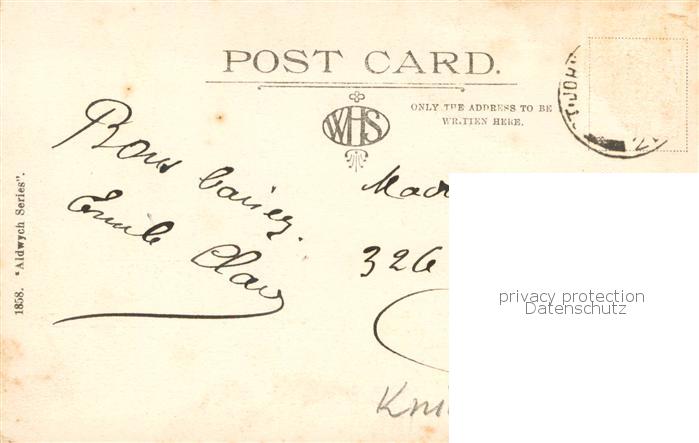 POST CARD.
WHS
ONLY THE ADDRESS TO BE
WRITTEN HERE.
Bons baisers.
Emile Claus
326
1858. "Aldwych Series".
privacy protection
Datenschutz